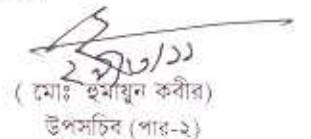 ( মোঃ হুমায়ুন কবীর)
উপসচিব (পার-২)